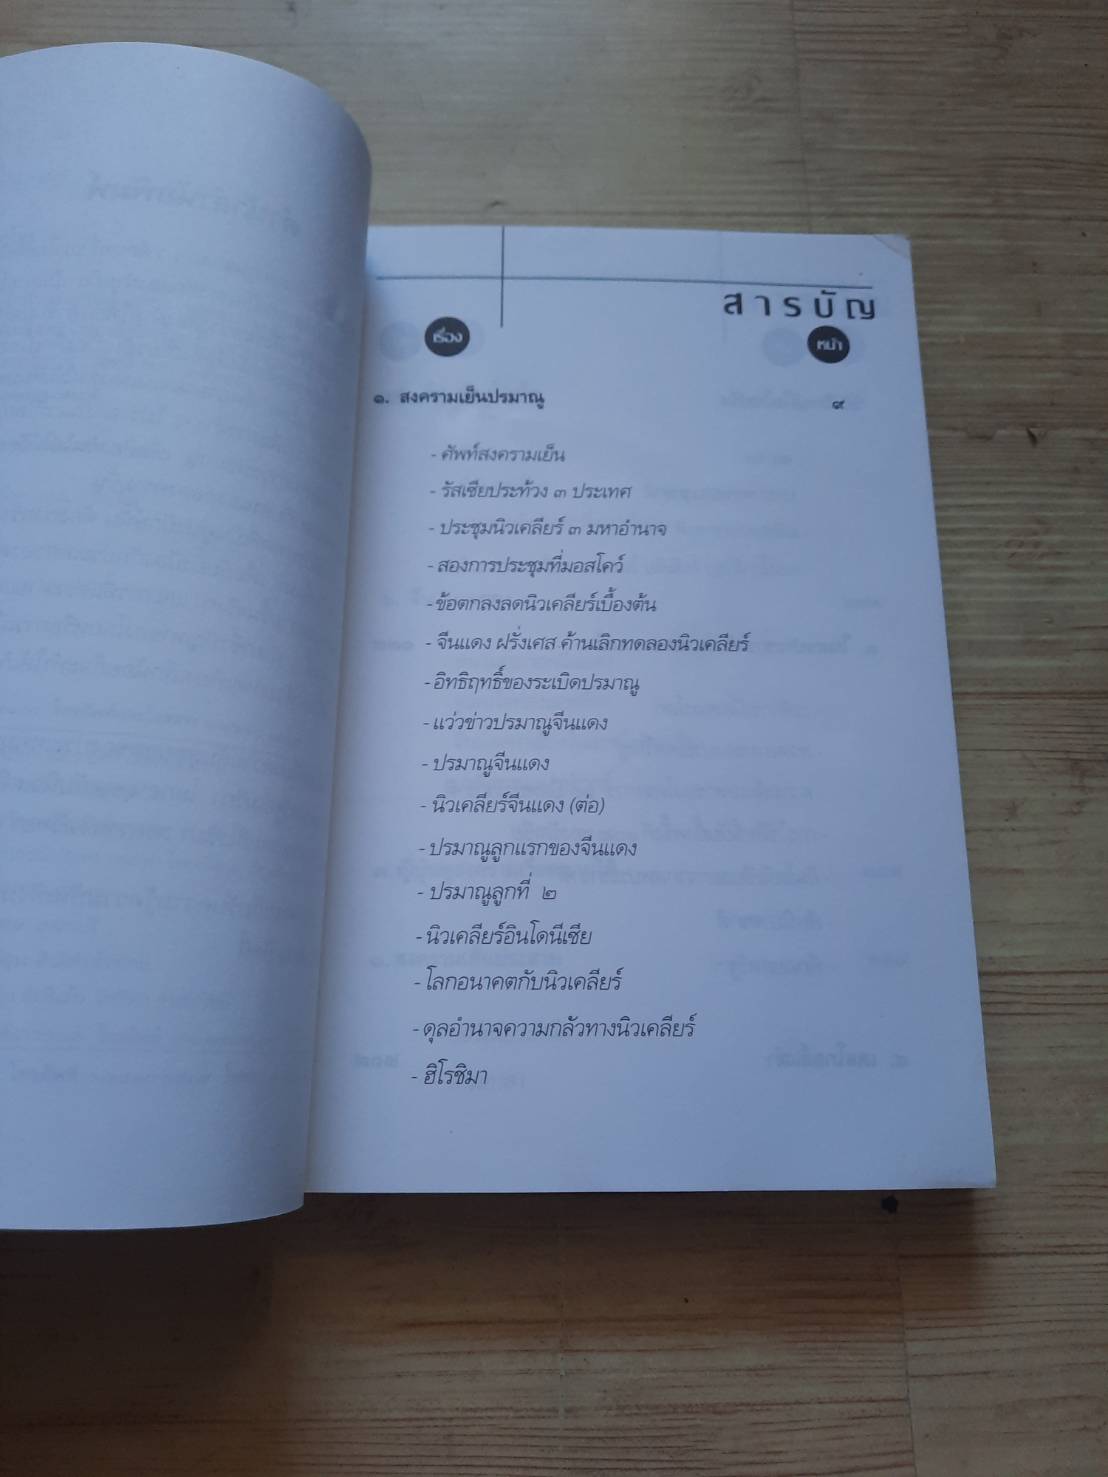 สารบัญ
เรื่อง
หน้า
๑. สงครามเย็นปรมาณู ๙
- ศัพท์สงครามเย็น
- รัสเซียประท้วง ๓ ประเทศ
- ประชุมนิวเคลียร์ ๓ มหาอำนาจ
- สองการประชุมที่มอสโคว์
- ข้อตกลงลดนิวเคลียร์เบื้องต้น
- จีนแดง ฝรั่งเศส ค้านเลิกทดลองนิวเคลียร์
- อิทธิฤทธิ์ของระเบิดปรมาณู
- แว่วข่าวปรมาณูจีนแดง
- ปรมาณูจีนแดง
- นิวเคลียร์จีนแดง (ต่อ)
- ปรมาณูลูกแรกของจีนแดง
- ปรมาณูลูกที่ ๒
- นิวเคลียร์อินโดนีเซีย
- โลกอนาคตกับนิวเคลียร์
- ดุลอำนาจความกลัวทางนิวเคลียร์
- ฮิโรชิมา